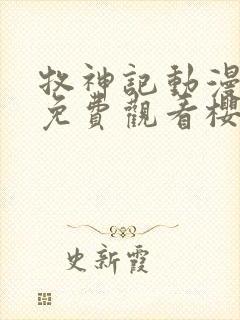 牧神記動漫
免費觀看櫻
史新霞